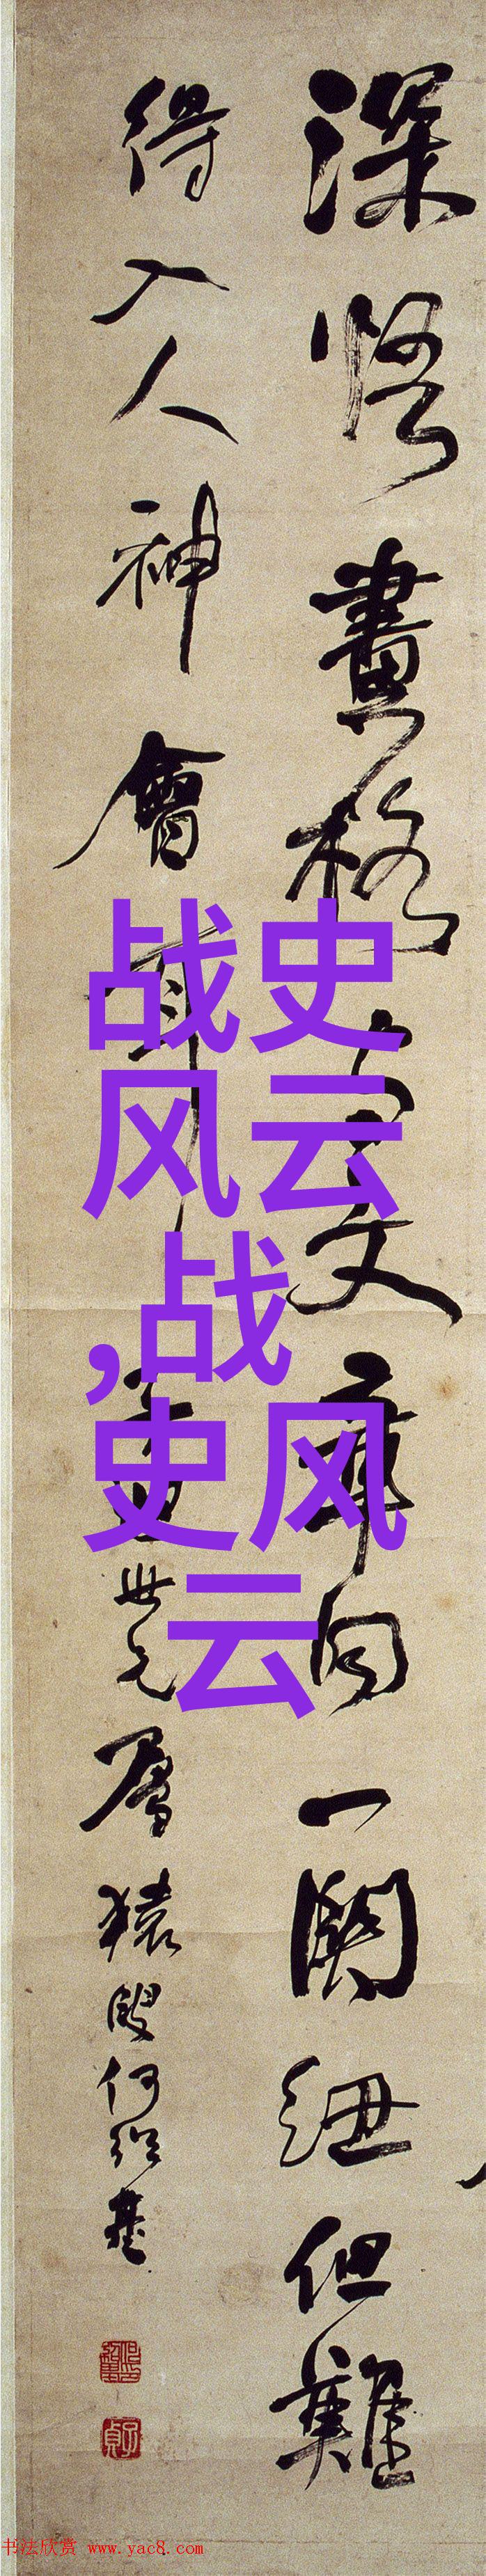 深悟畫格文章同一關紐但難
得入人神會耳
世兄屬
猿叟何紹基
子貞
战史
风云
,战
史风
云
书法欣赏 www.yac8.com